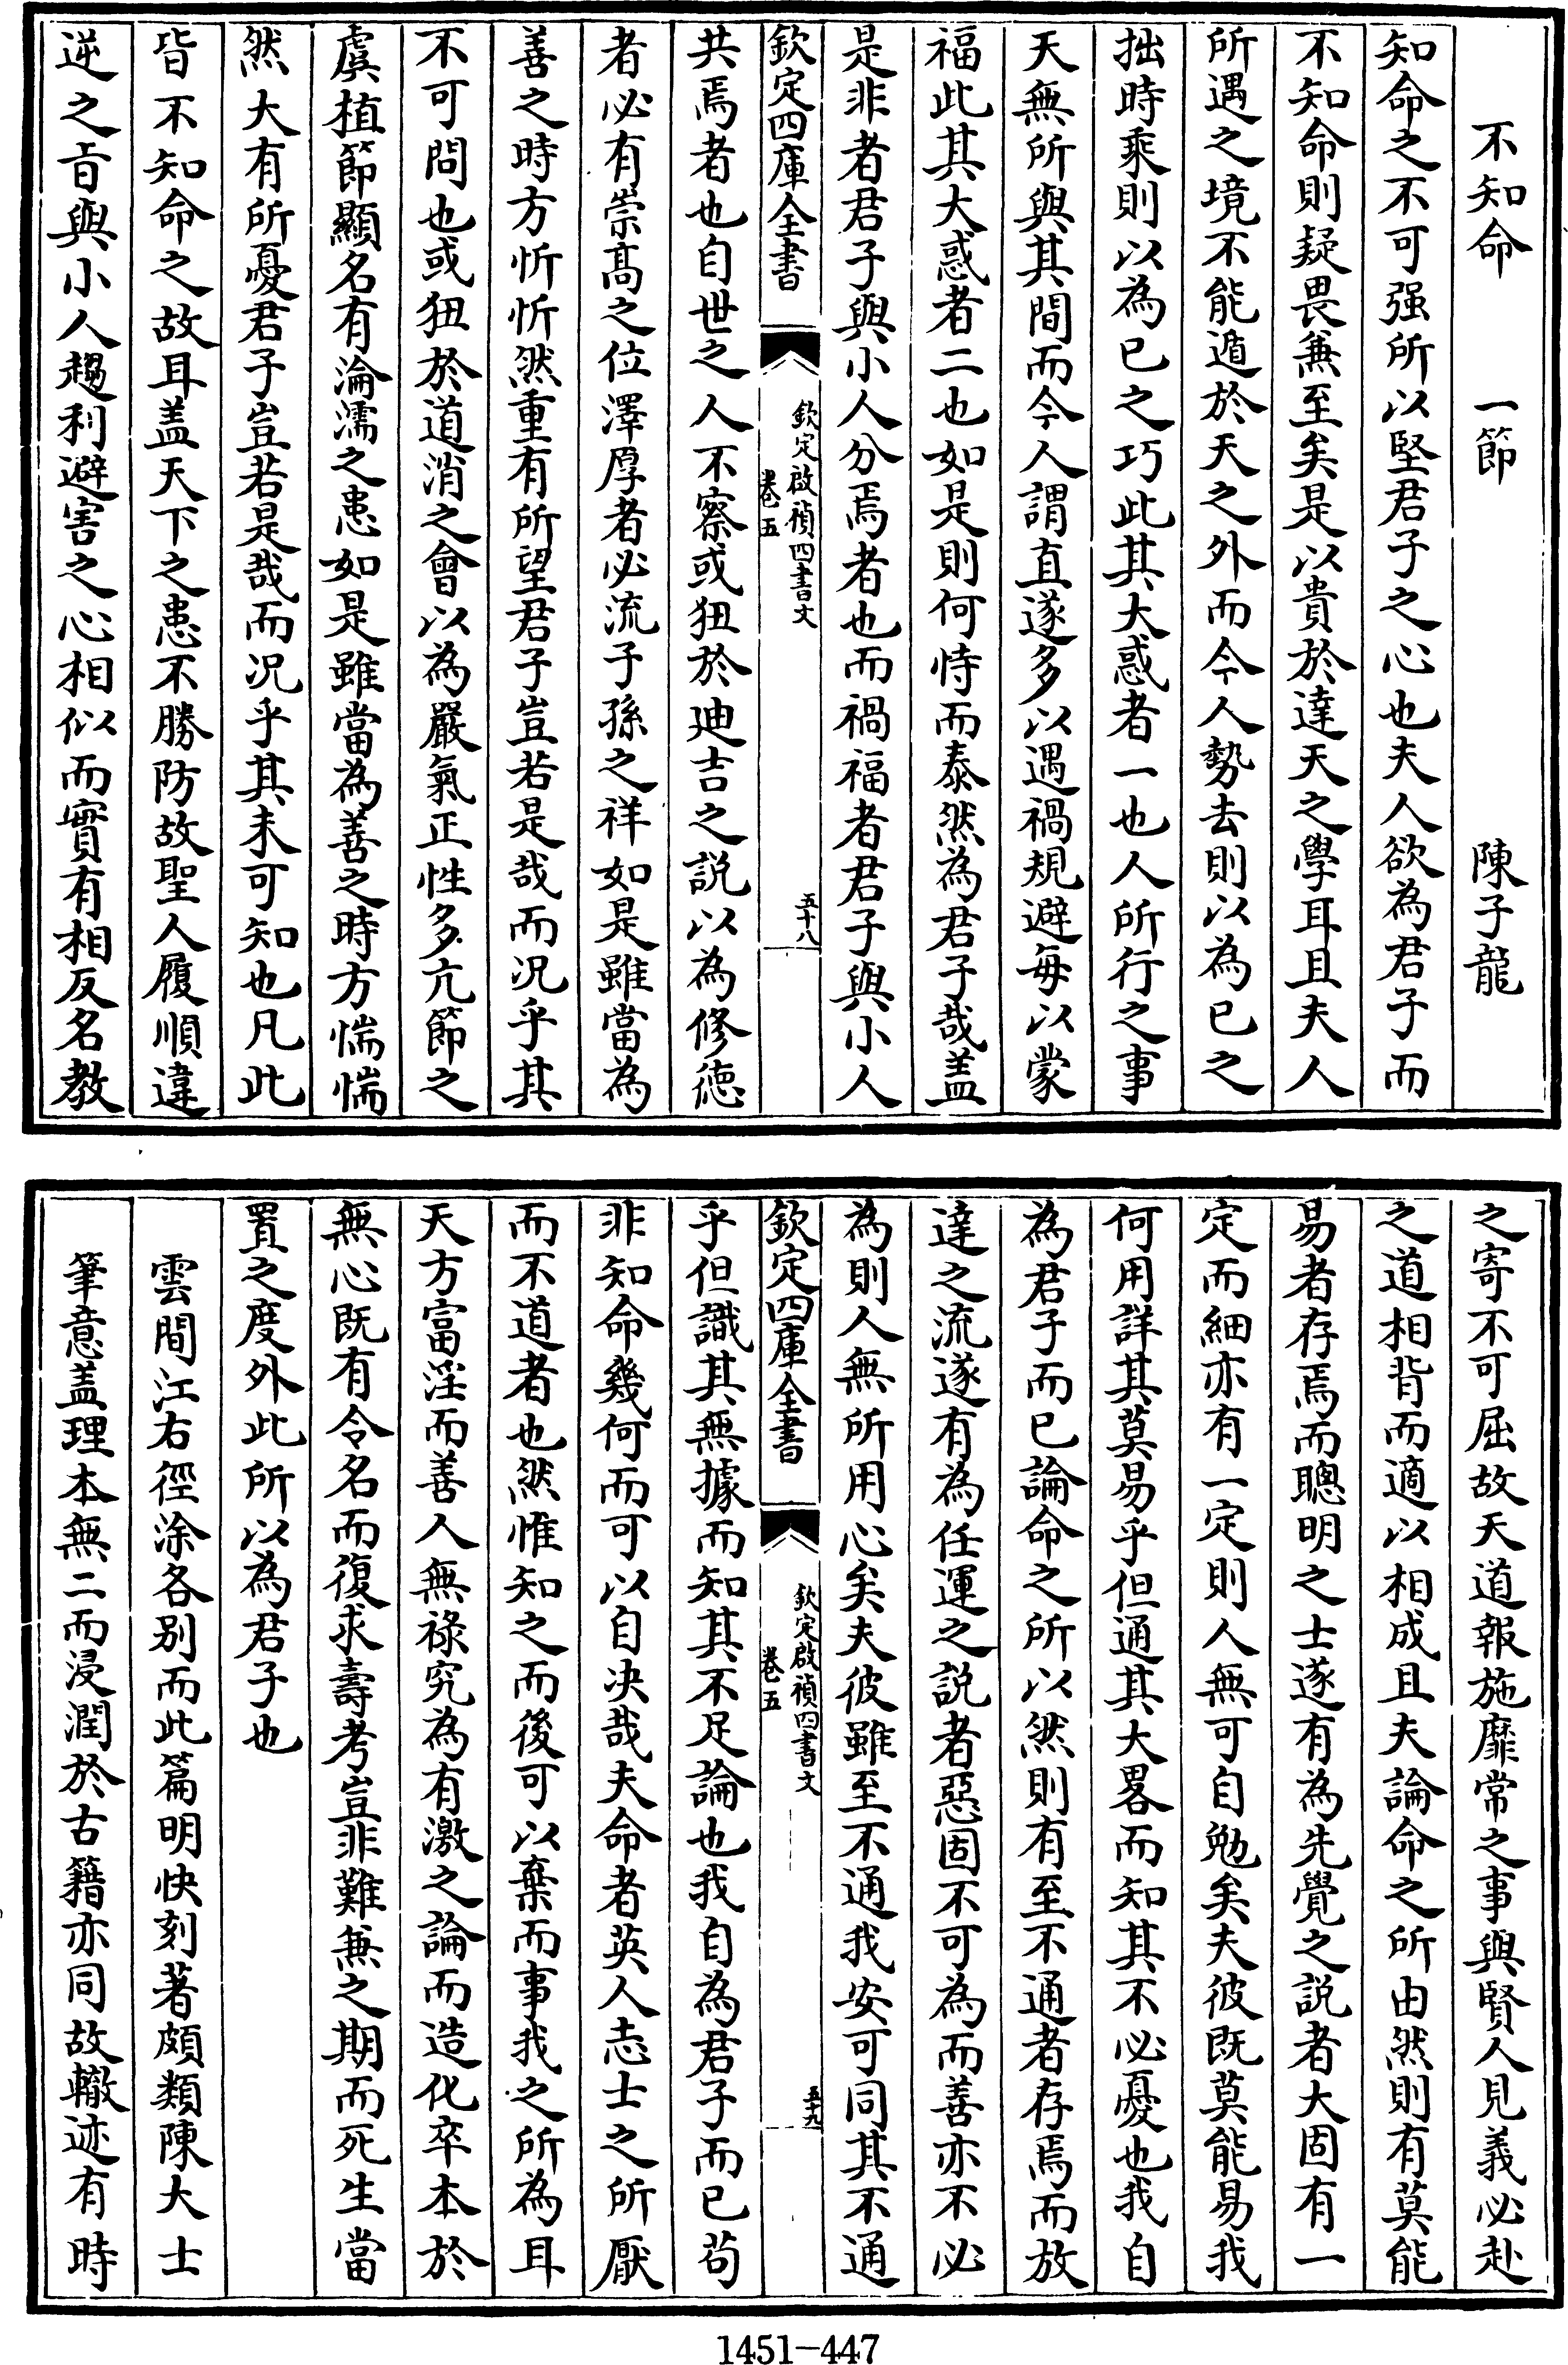 不知命　一節　陳子龍
知命之不可强所以堅君子之心也夫人欲為君子而
不知命則疑畏兼至矣是以貴於達天之學耳且夫人
所遇之境不能遁於天之外而今人勢去則以為已之
拙時乘則以為已之巧此其大惑者一也人所行之事
天無所與其間而今人謂直遂多以遇禍規避每以蒙
福此其大惑者二也如是則何恃而泰然為君子哉盖
是非者君子與小人分焉者也而禍福者君子與小人
欽定四庫全書
欽定啟禎四書文
卷五
五十八
共焉者也自世之人不察或狃於迪吉之説以為修徳
者必有崇髙之位澤厚者必流子孫之祥如是雖當為
善之時方忻忻然重有所望君子豈若是哉而况乎其
不可問也或狃於道消之會以為嚴氣正性多亢節之
虞植節顯名有淪濡之患如是雖當為善之時方惴惴
然大有所憂君子豈若是哉而况乎其未可知也凡此
皆不知命之故耳盖天下之患不勝防故聖人履順違
逆之㫖與小人趨利避害之心相似而實有相反名教
之寄不可屈故天道報施靡常之事與賢人見義必赴
之道相背而適以相成且夫論命之所由然則有莫能
易者存焉而聰明之士遂有為先覺之説者大固有一
定而細亦有一定則人無可自勉矣夫彼既莫能易我
何用詳其莫易乎但通其大畧而知其不必憂也我自
為君子而已論命之所以然則有至不通者存焉而放
達之流遂有為任運之説者惡固不可為而善亦不必
為則人無所用心矣夫彼雖至不通我安可同其不通
欽定四庫全書
欽定啟禎四書文
卷五
五十九
乎但識其無據而知其不足論也我自為君子而已苟
非知命幾何而可以自决哉夫命者英人志士之所厭
而不道者也然惟知之而後可以棄而事我之所為耳
天方富淫而善人無祿究為有激之論而造化卒本於
無心既有令名而復求壽考豈非難兼之期而死生當
置之度外此所以為君子也
雲間江右徑涂各别而此篇明快刻著頗類陳大士
筆意盖理本無二而浸潤於古籍亦同故轍迹有時
1451-447